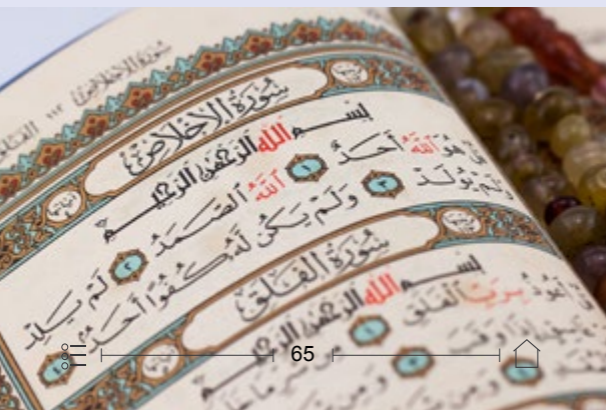 سُورَةُ الإِخْلَاصِ ١١٢
سُورَةُ الإِخْلَاصِ
بِسْمِ اللَّهِ الرَّحْمَٰنِ الرَّحِيمِ
هُوَ اللَّهُ أَحَدٌ ١ اللَّهُ الصَّمَدُ ٢ لَمْ يَلِدْ
وَلَمْ يُولَدْ ٣ وَلَمْ يَكُن لَّهُ كُفُوًا أَحَدٌ ٤
سُورَةُ الفَلَقِ
بِسْمِ اللَّهِ الرَّحْمَٰنِ الرَّحِيمِ
أَعُوذُ بِرَبِّ الفَلَقِ ١ مِن شَرِّ مَا خَلَقَ
65